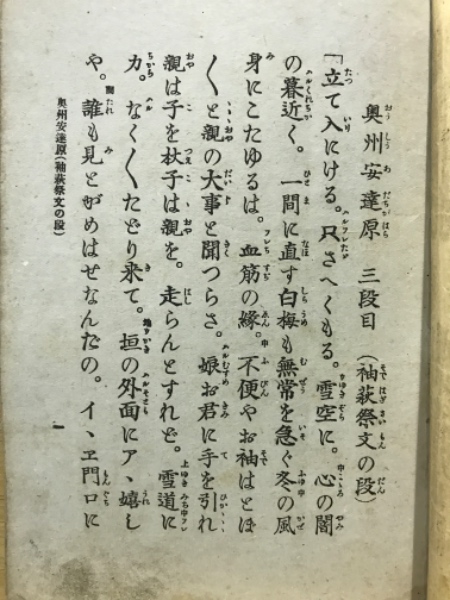 奥州安達原　三段目　（袖萩祭文の段）
「立て入にける。只さへくもる。雪空に。心の闇
の暮近く。一間に直す白梅も無常を急ぐ冬の風
身にこたゆるは。血筋の縁。不便やお袖はとぼ
〱と親の大事と聞つらさ。娘お君に手を引れ
親は子を杖子は親を。走らんとすれど。雪道に
力。なく〱たどり来て。垣の外面にアヽ嬉し
や。誰も見とがめはせなんだの。イヽヱ門口に
奥州安達原（袖萩祭文の段）
一